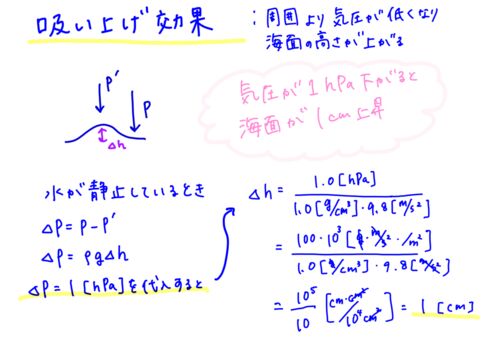 吸い上げ効果
:周囲より気圧が低くなり
海面の高さが上がる
気圧が1hPa下がると
海面が1cm上昇
P'
P
Δh
水が静止しているとき
ΔP = P - P'
ΔP = ρgΔh
ΔP = 1 [hPa]を代入すると
Δh = 1.0[hPa] / 1.0[g/cm³]・9.8[m/s²]
= 100・10³[g・m/s²・/m²] / 1.0[g/cm³]・9.8[m/s²]
= 10⁵/10 [cm・cm³/10⁴cm²] = 1 [cm]